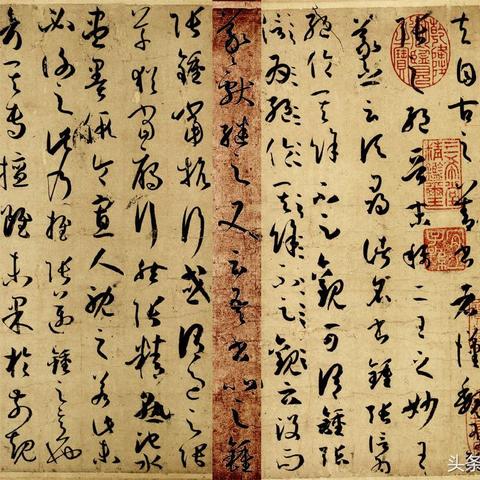 夫自古之善書者漢魏有
張之絕晉末稱二王之妙王
羲之云頃尋諸名書鍾張信為
絕倫其餘不足觀可謂鍾張
為絕倫其餘不足觀云沒而
羲獻繼之又云吾書比之鍾
張鍾當抗行或謂過之張
草猶當雁行然張精熟池水
盡墨假令寡人耽之若此未
必謝之此乃推張邁鍾之意也
考其專擅雖未果於前規
头条